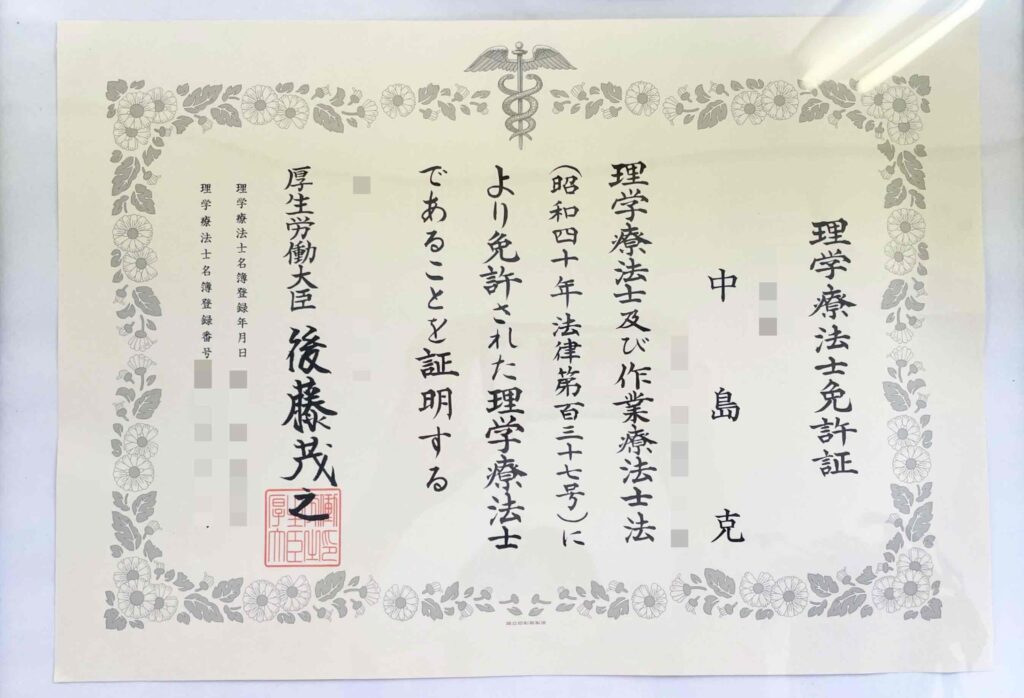 理学療法士免許証
中島克
理学療法士及び作業療法士法
(昭和四十年法律第百三十七号)に
より免許された理学療法士
であることを証明する
厚生労働大臣 後藤茂之
理学療法士名簿登録年月日
理学療法士名簿登録番号